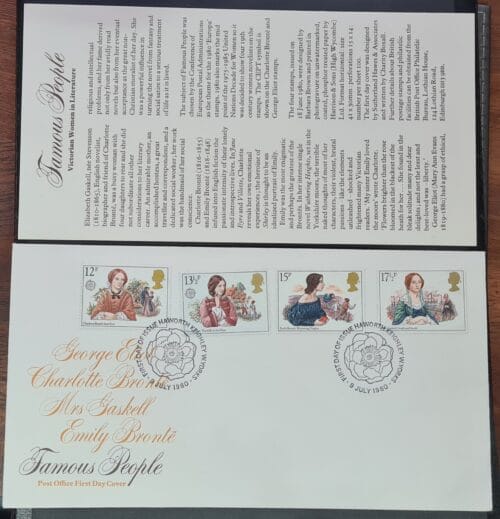 Famous People
Victorian Women in Literature
Elizabeth Gaskell, née Stevenson
(1810-1865), English novelist,
biographer and friend of Charlotte
Brontë, was a busy woman with
four daughters to rear and she did
not subordinate other
considerations to her literary
career. An admirable mother, an
accomplished hostess, a great
traveller and correspondent, and a
dedicated social worker, her work
was the handmaid of her social
conscience.
Charlotte Brontë (1816-1855)
and Emily Brontë (1818-1848)
infused into English fiction the
passionate spirit of their lonely
and introspective lives. In Jane
Eyre and Villette, Charlotte
reveals her own emotional
experiences; the heroine of
Shirley is thought to be an
idealised portrait of Emily.
Emily was the more enigmatic
and perhaps the greatest of the
Brontës. In her intense single
novel Wuthering Heights, the
Yorkshire moors, the terrible
naked thought of most of her
characters, their violent, brutal
passions - like the elements
untamed -
frightened many Victorian
readers. 'My sister Emily loved
the moors' wrote Charlotte.
'Flowers brighter than the rose
bloomed in the blackest of the
heath for her She found in the
bleak solitude many and dear
delights; and not the least and
best-loved was - liberty.'
George Eliot (Mary Ann Evans,
1819-1880) had a grasp of ethical,
religious and intellectual
problems, and her fame derived
not only from her avidly read
novels but also from her eventual
acceptance as the great non-
Christian moralist of her day. She
was a powerful influence in
turning the novel from fantasy and
social satire to a serious treatment
of life as it is lived.
The subject of Famous People was
chosen by the Conference of
European Postal Administrations
as the theme for the 1980 'Europa'
stamps. 1980 also marks the mid
point of the 1975-85 United
Nations Decade for Women so it
was decided to show four 19th
century women novelists on the
stamps. The CEPT symbol is
shown on the Charlotte Brontë and
George Eliot stamps.
The four stamps, issued on
9 July 1980, were designed by
Barbara Brown and printed in
photogravure on unwatermarked,
phosphor coated paper by
Harrison & Sons (High Wycombe)
Ltd. Format: horizontal; size
perforations 15 x 14;
number per sheet 100.
The first day cover was designed
by Sutherland Hawes & Associates
and written by Gentry Bonsall.
Information about British
postage stamps and philatelic
items can be obtained from the
British Post Office Philatelic
Bureau, Lothian House,
124 Lothian Road,
Edinburgh EH3 9BB.
12P 13½P 15P 17½P
FIRST DAY OF ISSUE HAWORTH KEIGHLEY W.YORKS
9 JULY 1980
FIRST DAY OF ISSUE HAWORTH KEIGHLEY W.YORKS
9 JULY 1980
George Eliot
Charlotte Brontë
Mrs Gaskell
Emily Brontë
Famous People
Post Office First Day Cover